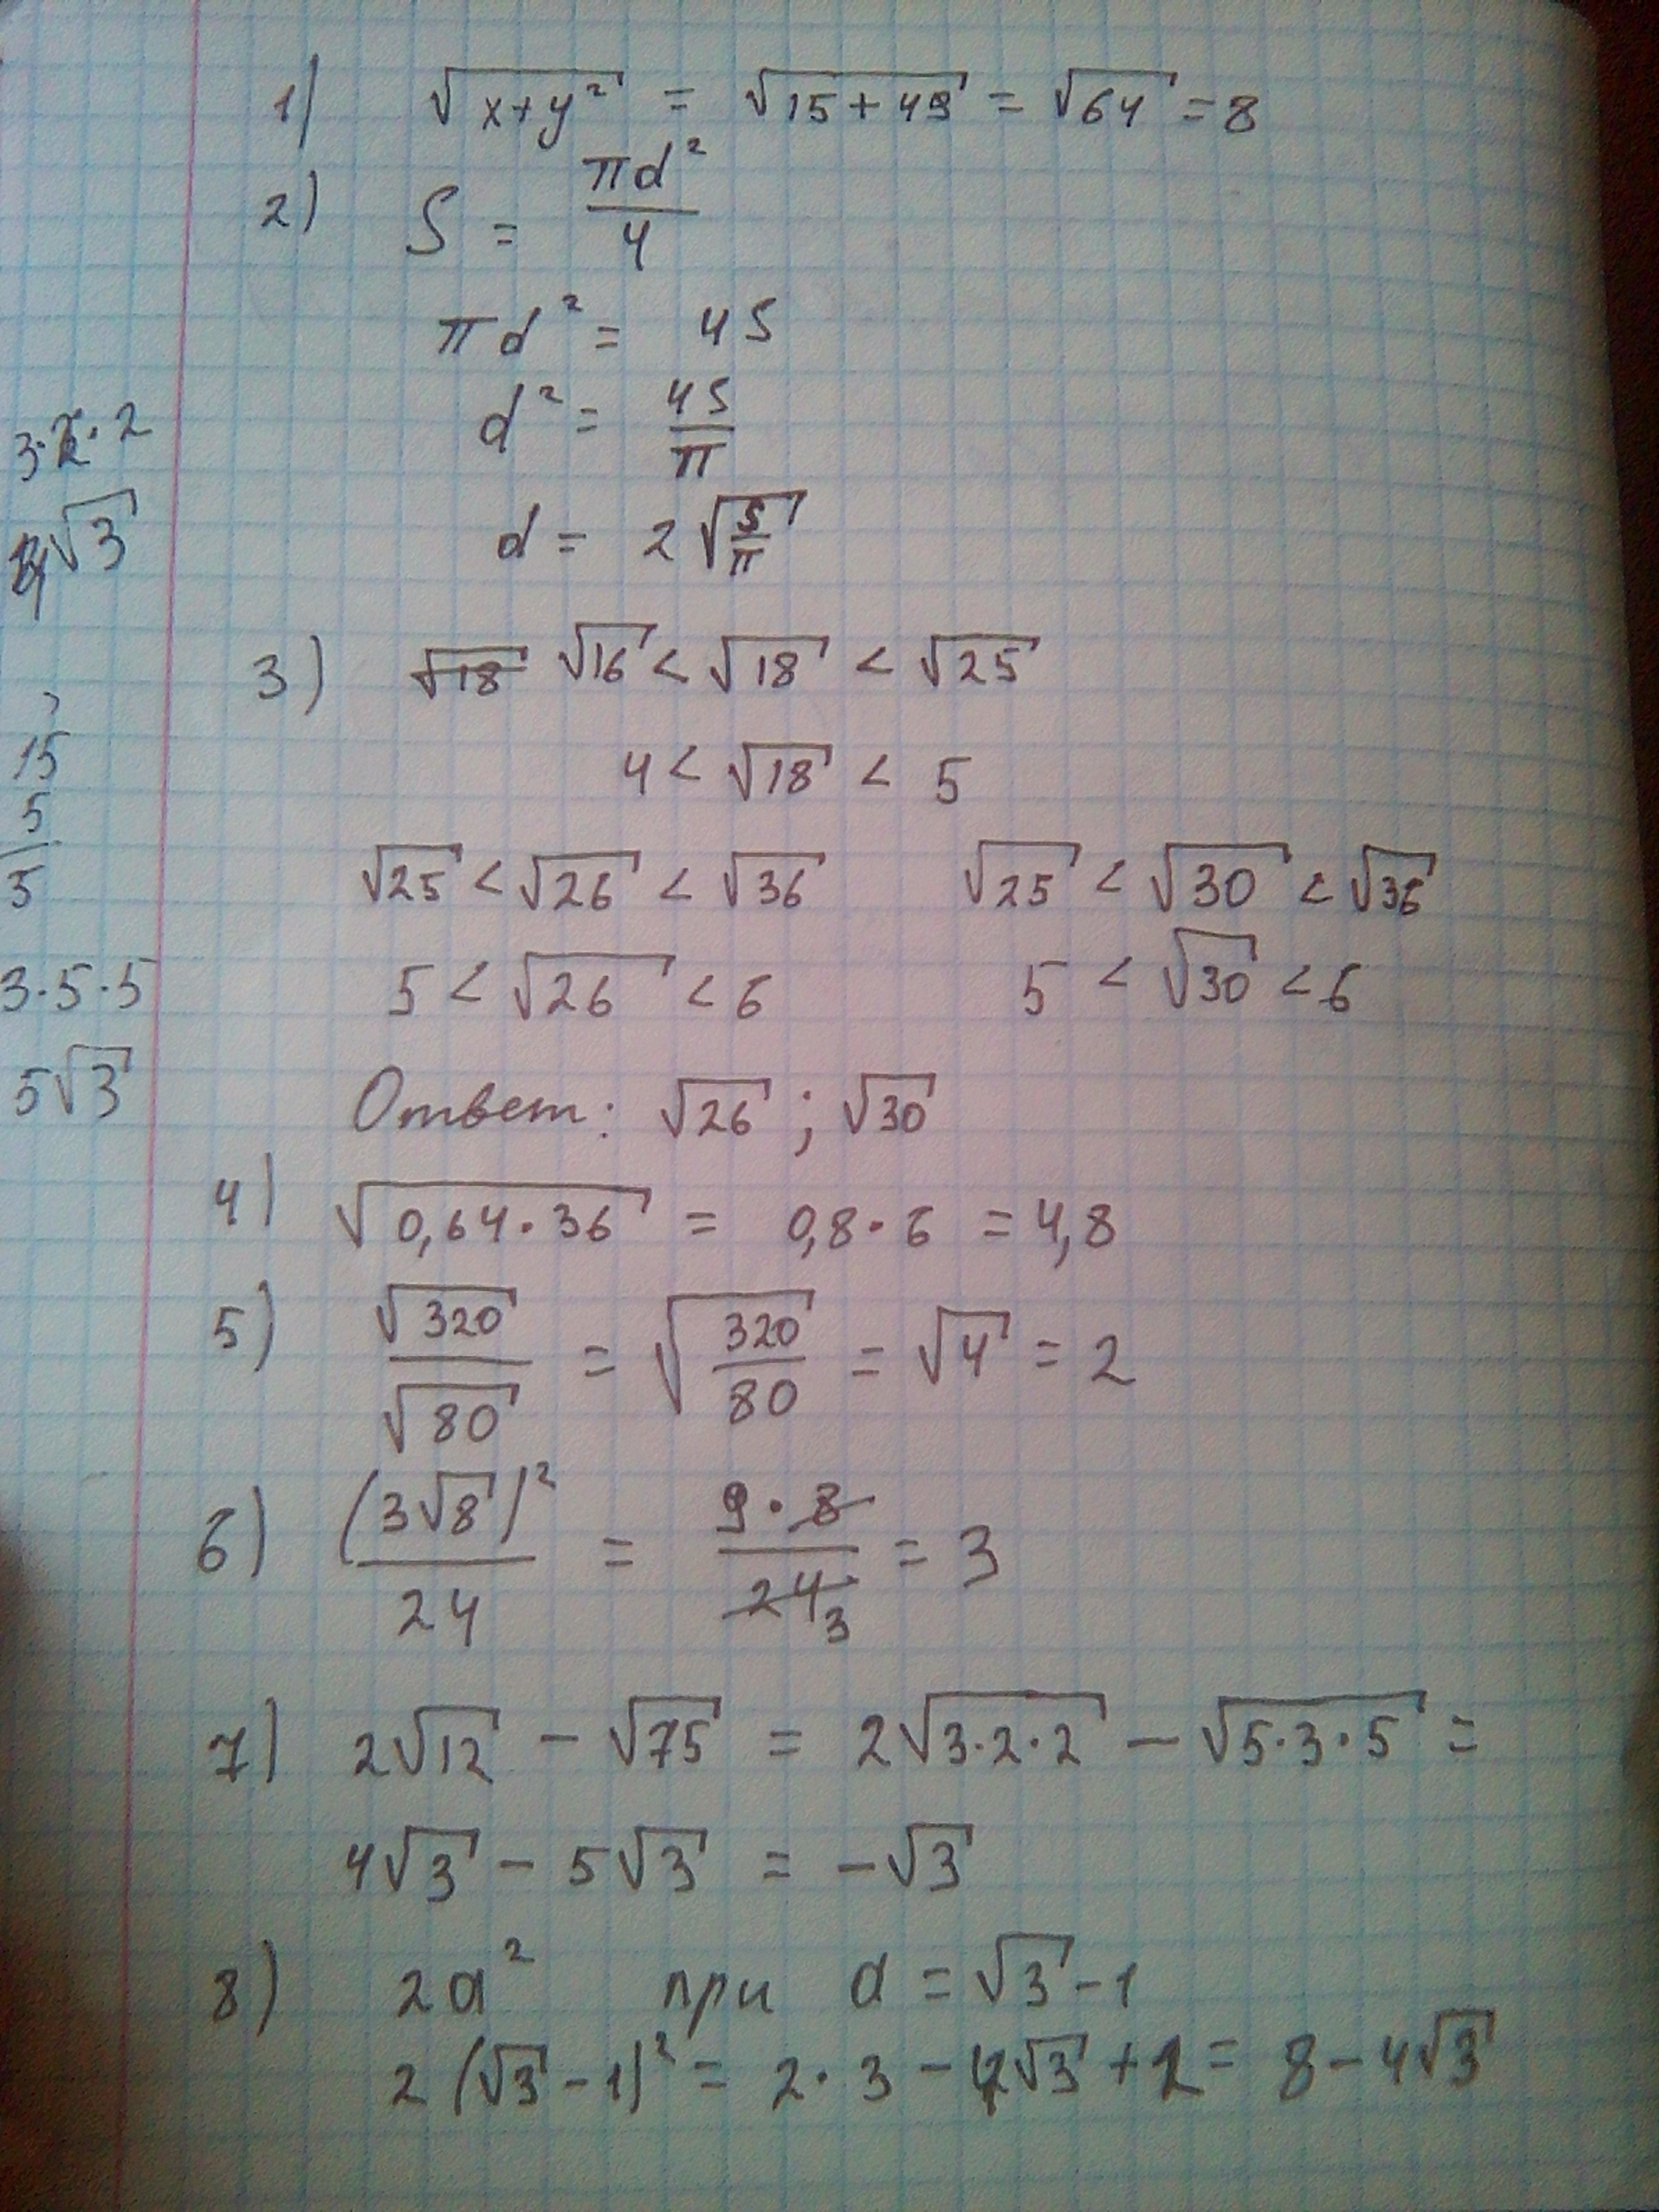 1) √(x+y²) = √(15+49) = √64 = 8
2) S = πd²/4
πd² = 4S
d² = 4S/π
d = 2√(S/π)
3) √18 √16 < √18 < √25
4 < √18 < 5
√25 < √26 < √36 √25 < √30 < √36
5 < √26 < 6 5 < √30 < 6
Ответ: √26 ; √30
4) √(0,64·36) = 0,8·6 = 4,8
5) √320/√80 = √(320/80) = √4 = 2
6) (3√8)²/24 = 9·8/24 3 = 3
7) 2√12 − √75 = 2√(3·2·2) − √(5·3·5) =
4√3 − 5√3 = −√3
8) 2a² при a = √3 − 1
2(√3 − 1)² = 2·3 − 4√3 + 2 = 8 − 4√3
3·2·2
√3
15
5
5
3·5·5
5√3